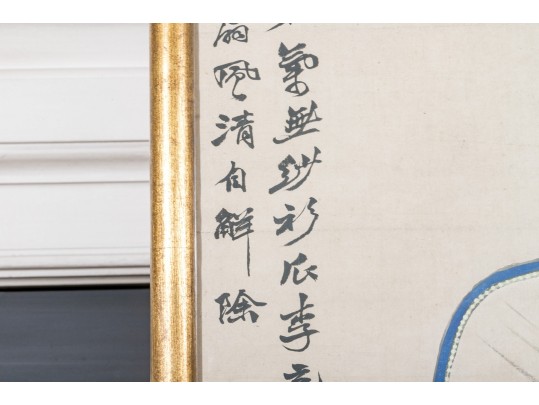 氣無紗衫瓜李
扇風清自解除